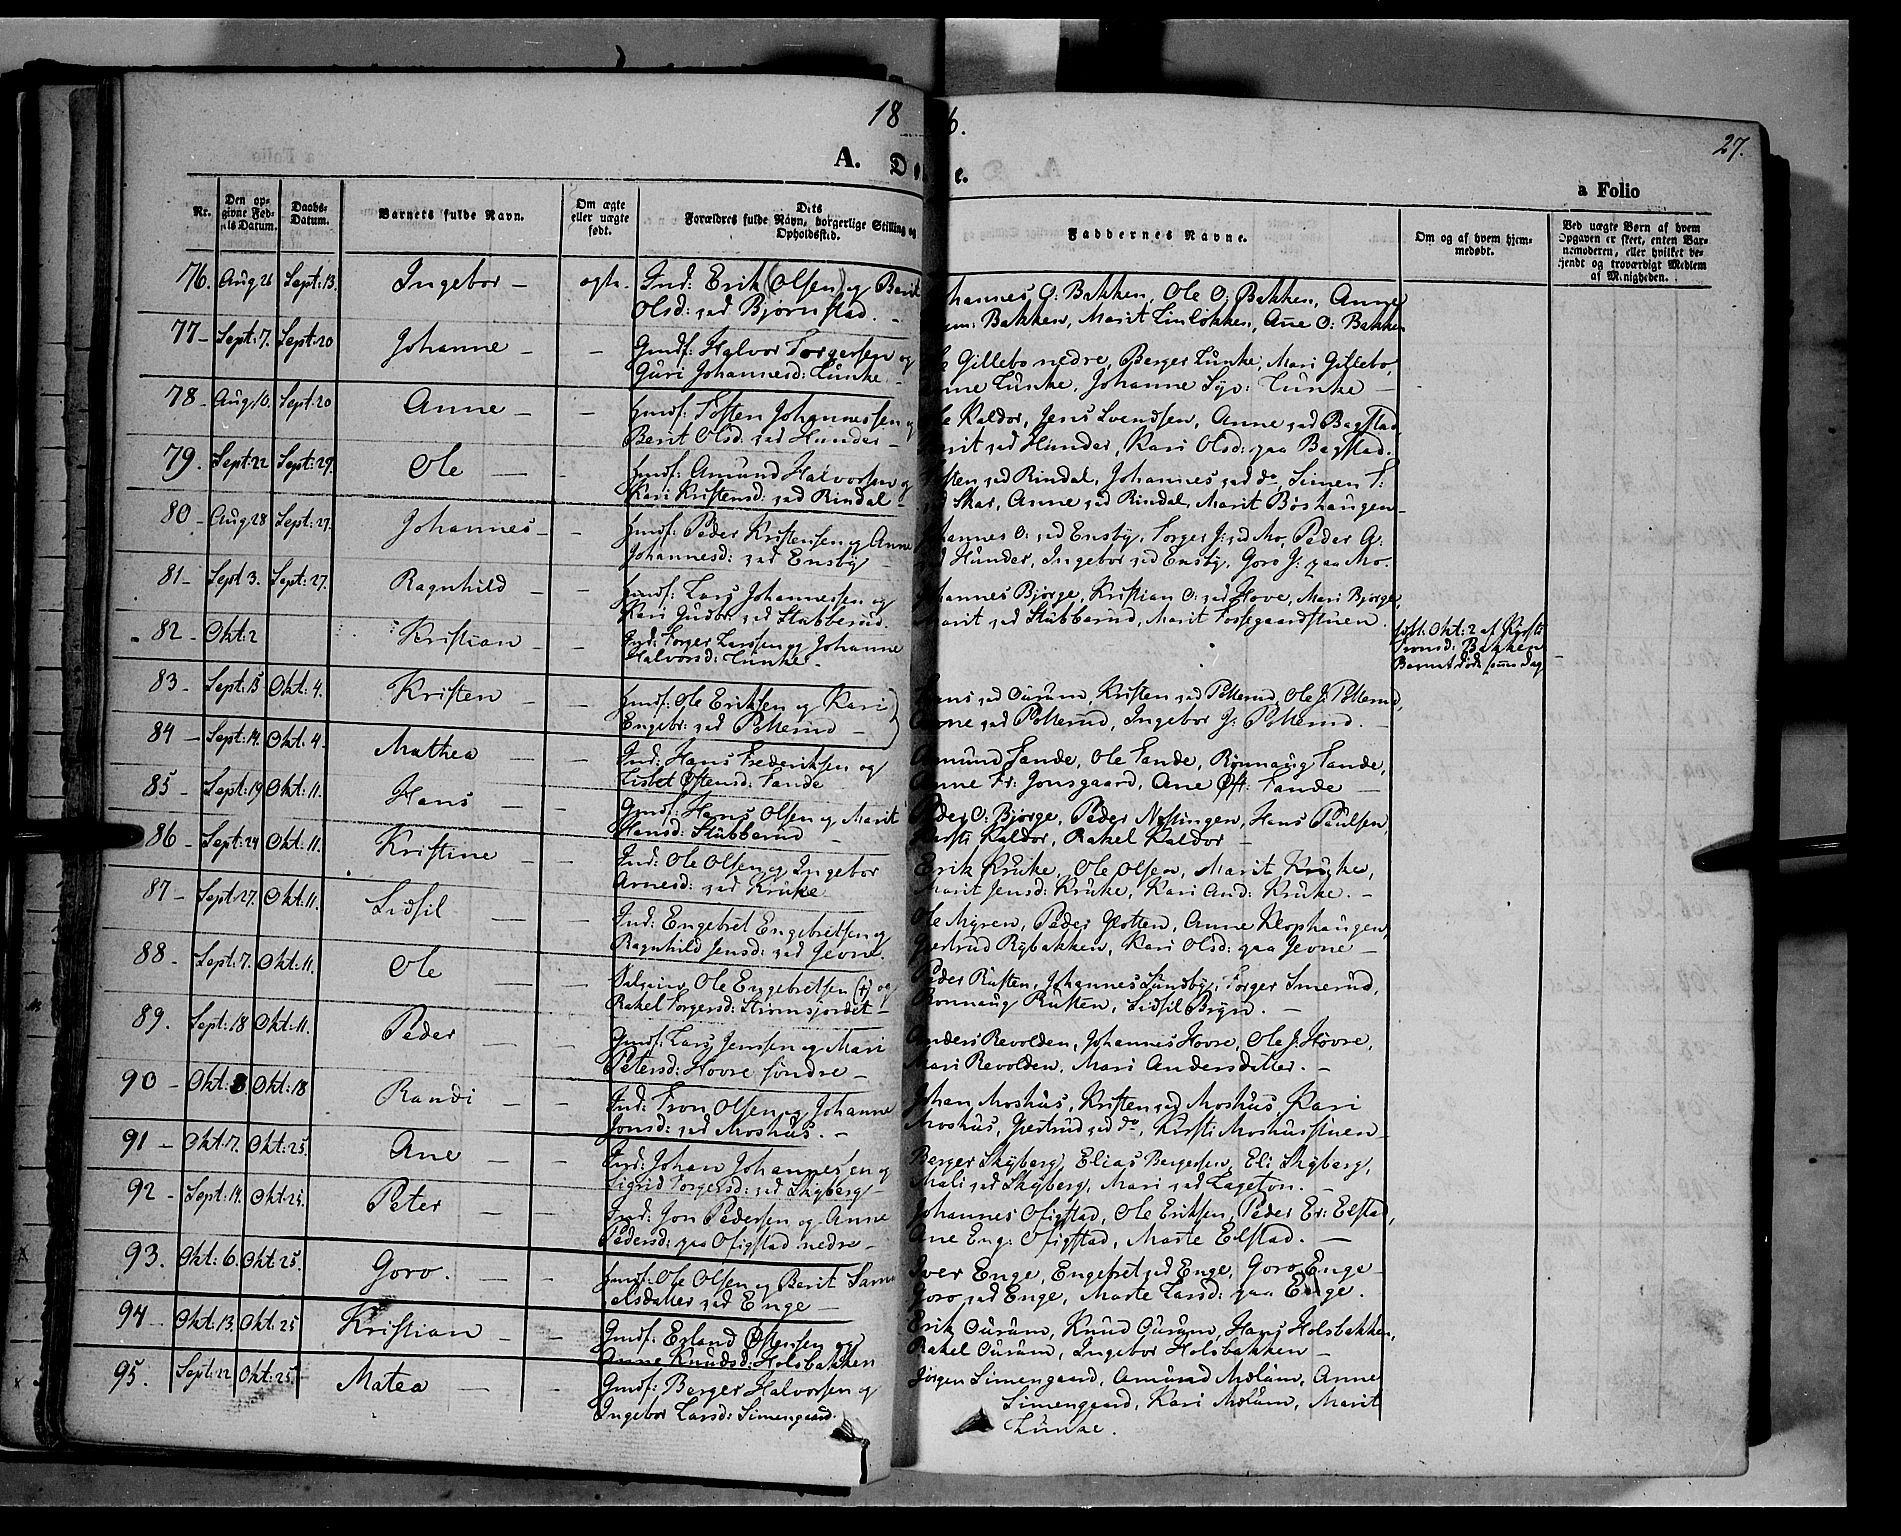 18 6.
27.
A. Do e.
a Folio
Nr.
Den op-
givne Fød-
sels Datum.
Daabs-
Datum.
Barnets fulde Navn.
Om ægte
eller uægte
født.
Dets
Forældres fulde Navn, borgerlige Stilling og
Opholdssted.
Faddernes Navne.
Om og af hvem hjem-
medøbt.
Ved uægte Børn af hvem
Opgaven er skeet, enten Bar-
nemoderen, eller hvilket be-
kjendt og troværdigt Medlem
af Menigheden.
76. Aug 26 Sept: 13. Ingebor - Ind: Erik (Olsen) og Berit
Olsd: sad Bjørnstad. -
hannes O: Bakken, Ole O: Bakken, Anne
Bakken, Marit Linløkken, Ane O: Bakken
77 - Sept: 7. Sept: 20 Johanne - - Gmdf: Halvor Torgersen og
Guri Johannesd: Lunke. -
Gillebo nedre, Berger Lunke, Mari Gillebo,
nne Lunke, Johanne Syv: Lunke -
78 - Aug 10. Sept: 20 Anne - - Hmdf: Tosten Johannessen og
Berit Olsd: sad Hunder -
Kaldor, Jens Svendsen, Anne sad Bagstad
rit sad Hunder, Kari Olsd: paa Bagstad.
79. Sept: 22 Sept: 29. Ole - - Hmdf: Amund Halvorsen og
Kari Kristensd: sad Rindal -
sten sad Rindal, Johannes sad do, Simen T:
Skar, Anne sad Rindal, Marit Bøshaugen -
80 - Aug 28 Sept: 27. Johannes - - Hmdf: Peder Kristensen og Anne
Johannesd: sad Ensby -
hannes O: sad Ensby, Torger J: sad Mo, Peder A:
Hunder, Ingebor sad Ensby, Goro J: paa Mo.
81 - Sept 3. Sept: 27. Ragnhild - - Hmdf: Lars Johannessen og
Kari Gudbr: sad Stubberud.
hannes Bjørge, Kristian O: sad Hove, Mari Bjørge,
Marit sad Stubberud, Marit Fossegaardstuen.
82 - Okt: 2 Kristian - - Ind: Torger Larssen og Johanne
Halvorsd: Lunke -
Okt: 2 af
Bakken
Barnet døde samme Dag
83 - Sept: 15 Okt: 4. Kristen - - Hmdf: Ole Eriksen og Kari
Engebr: sad Pollerud -
sad Øuråm, Kristen sad Pollerud, Ole J. Pollerud,
Anne sad Pollerud, Ingebor J: Pollerud.
84 - Sept: 14. Okt: 4. Mathea - - Ind: Hans Frederiksen og
Lisbet Øftensd: Tande
Amund Tande, Ole Tande, Rønnaug Tande,
Anne Fr: Jonsgaard, Ane Øft: Tande -
85 - Sept: 19 Okt: 11. Hans - - Gmdf: Hans Olsen og Marit
Hansd: Stubberud -
Peder O: Bjørge, Peder Nessingen, Hans Paulsen,
Kirsti Kaldor, Rakel Kaldor -
86 - Sept: 24 Okt: 11. Kristine - - Ind: Ole Olsen og Ingebor
Arnesd: sad Kruke
Erik Kruke, Ole Olsen, Marit Kruke,
Marit Jensd: Kruke, Kari And: Kruke. -
87 - Sept: 27. Okt: 11. Lidsil - - Ind: Engebret Engebretsen og
Ragnhild Jensd: sad Jevne.
Ole Myren, Peder Slotten, Anne Klophaugen,
Gjertrud Rybakken, Kari Olsd: paa Jevne -
88 - Sept: 7. Okt: 11. Ole - - Ole Engebretsen (†) og
Rakel Torgersd: Stromsjordet -
Peder Rusten, Johannes Sundby, Torger Smerud,
Rønnaug Rusten, Lidsil Bryn. -
89. Sept: 18 Okt: 11. Peder - - Gmdf: Lars Jenssen og Mari
Petersd: Hovre søndre -
Anders Revolden, Johannes Hovre, Ole J. Hovre,
Mari Revolden, Mari Andersdatter. -
90 - Okt: 3. Okt: 18 Randi - - Ind: Tron Olsen og Johanne
Jonsd: sad Moshus. -
Johan Moshus, Kristen sad Moshus Kari
Moshus, Gjertrud sad do, Kirsti Moshusstuen -
91 - Okt: 7. Okt: 25. Ane - - Ind: Johan Johannesen og
Sigrid Torgersd: sad Skyberg -
Berger Skyberg, Elias Bergersen, Eli Skyberg,
Mali sad Skyberg, Mari sad Lageton. -
92 - Sept: 14. Okt: 25. Peter - - Ind: Jon Pedersen og Anne
Pedersd: paa Ofigstad nedre -
Johannes Ofigstad, Ole Eriksen, Peder Er: Elstad,
Ane Eng: Ofigstad, Marte Elstad. -
93. Okt: 6. Okt: 25. Goro. - - Hmdf: Ole Olsen og Berit Sam
elsdatter sad Enge -
Iver Enge, Engebret sad Enge, Goro Enge -
Goro sad Enge, Marte Larsd: paa Enge.
94 - Okt: 13. Okt: 25 Kristian - - Gmdf: Erland Østensen og
Anne Knudsd: Holsbakken
Erik Øuråm, Knud Øuråm, Hans Holsbakken,
Rakel Øuråm, Ingebor Holsbakken -
95. Sept: 22 Okt: 25 Matea - - Gmdf: Berger Halvorsen og
Ingebor Larsd: Simengaard.
Jørgen Simengaard, Amund Moløm, Anne
Simengaard, Kari Moløm, Marit
Lunke.